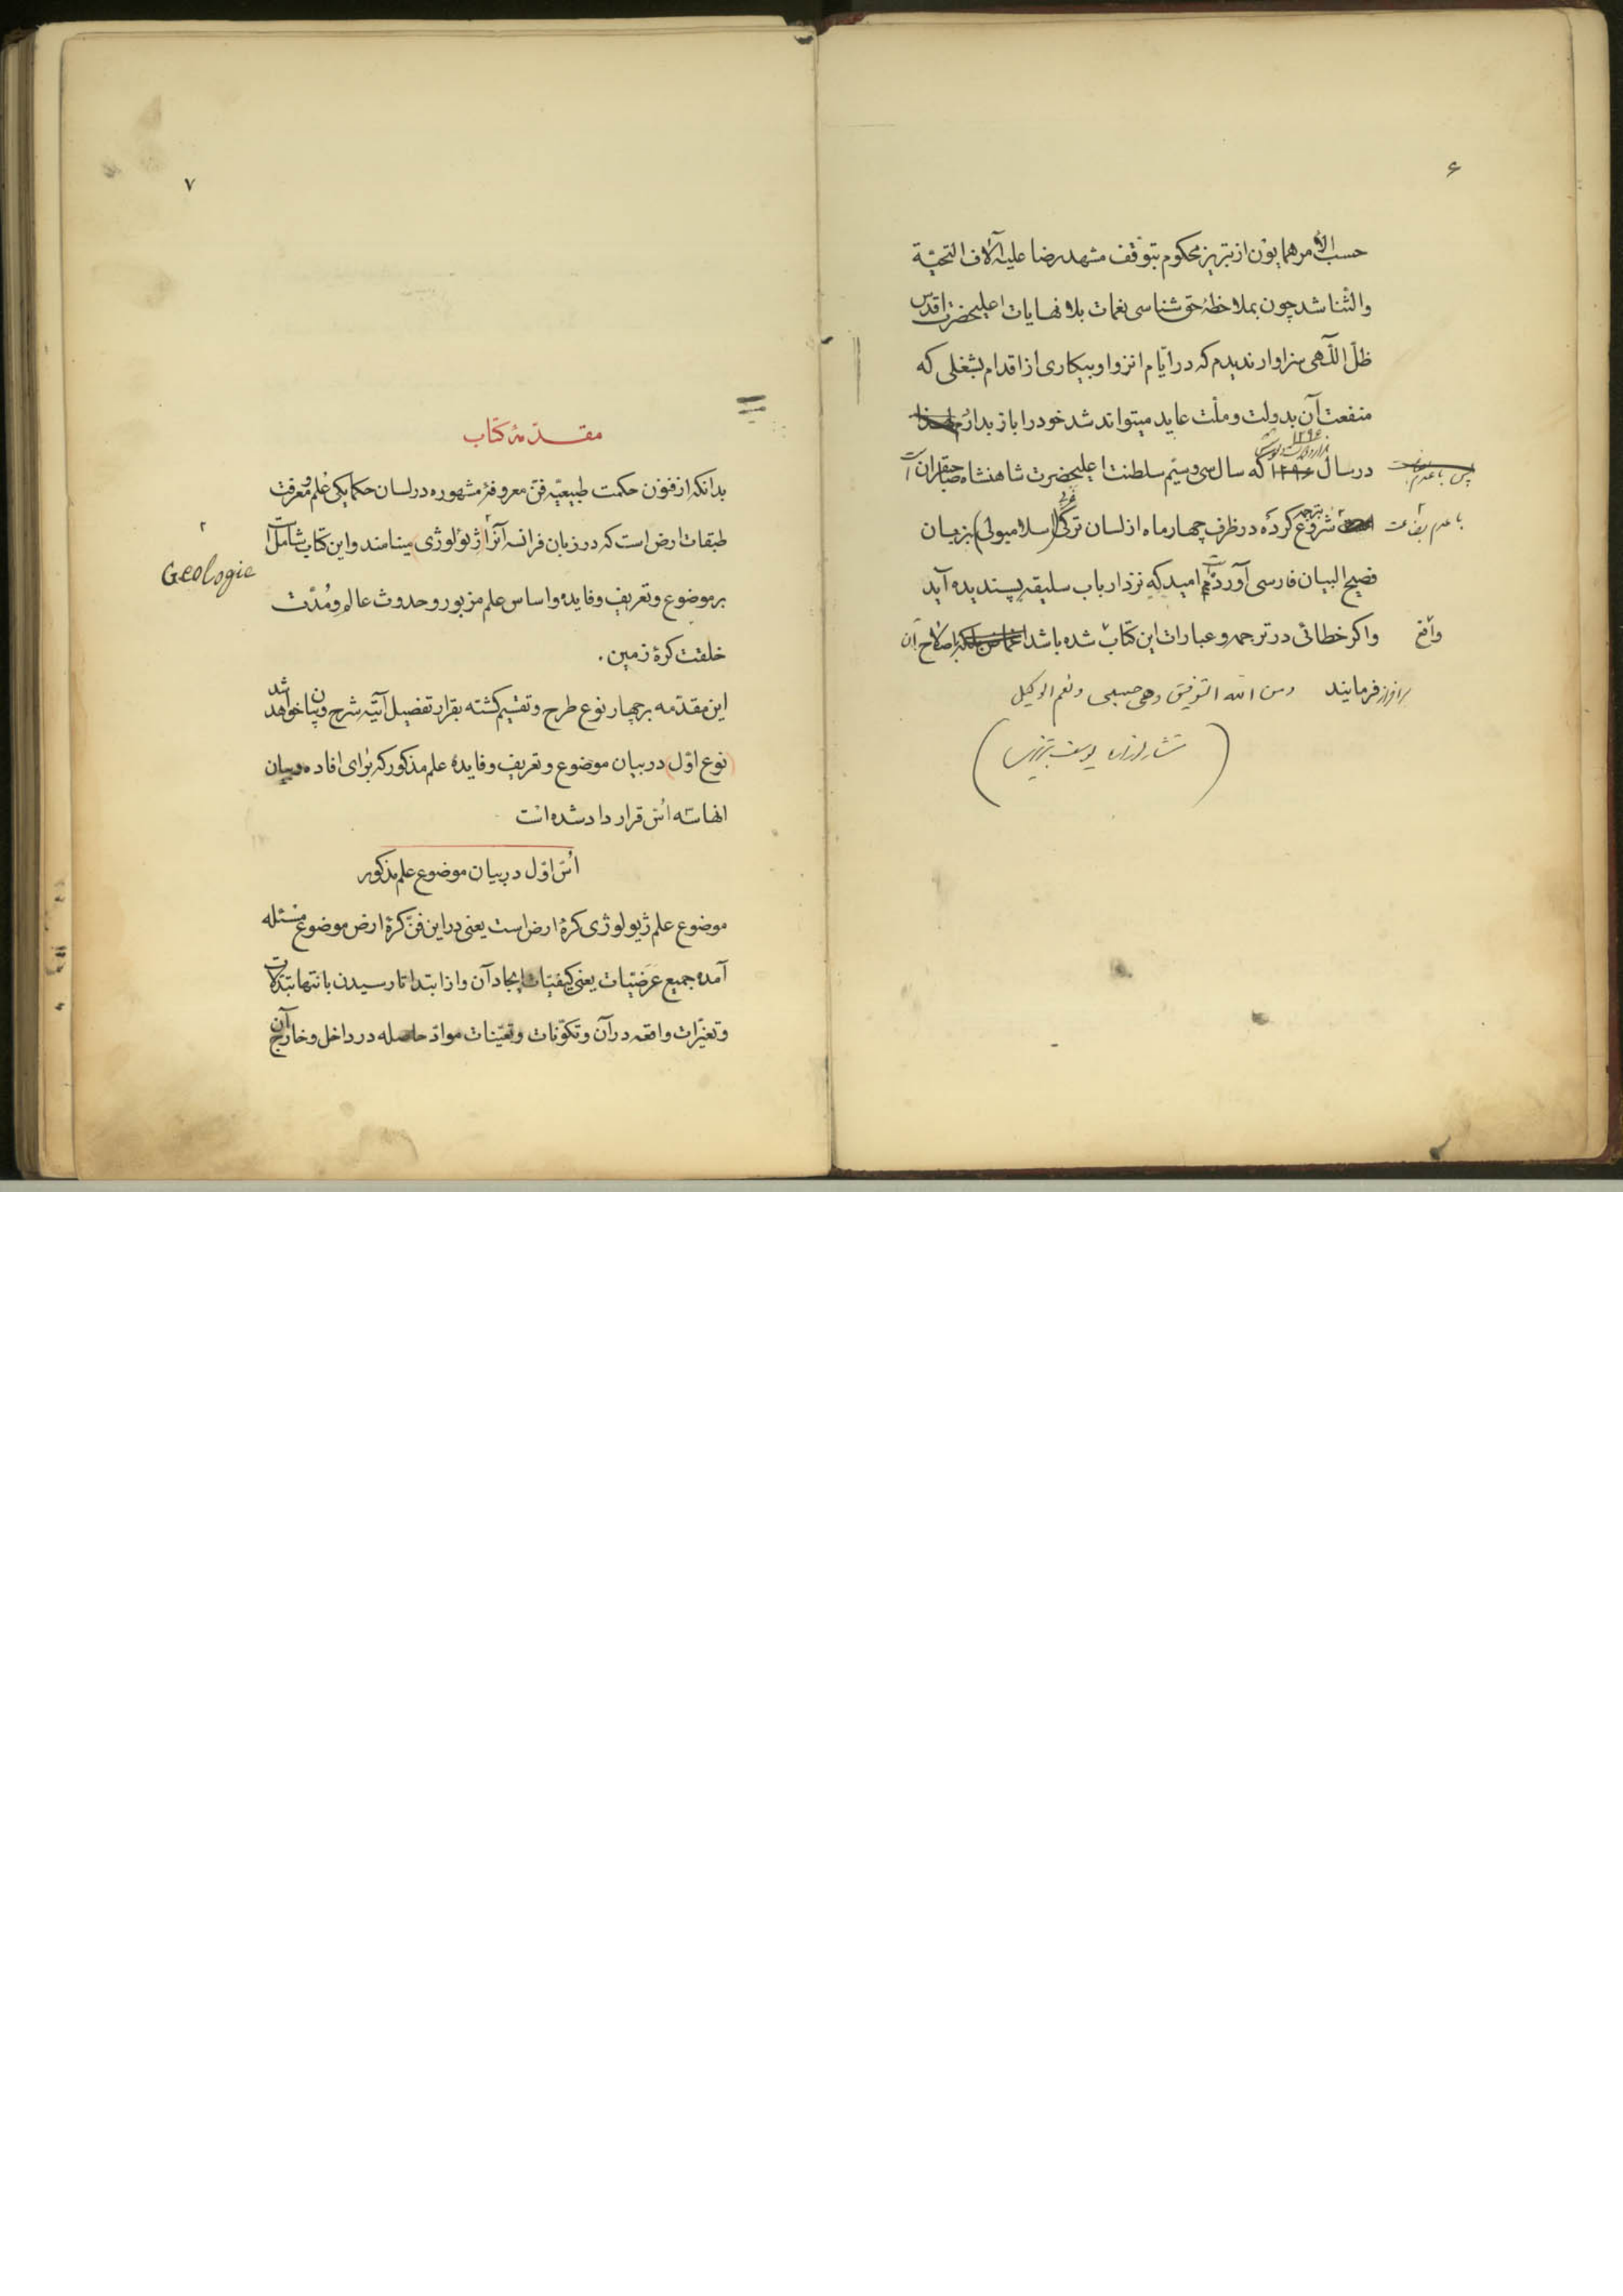 ۶
حسب الأمر همایون از تبریز محکوم بتوقف مشهد رضا علیه آلاف التحیّة
والثنا شد چون بملاحظهٔ حق شناسی نعمات بلا نهایات اعلیحضرت اقدس
ظلّ اللّهی سزاوار ندیدم که در ایّام انزوا و بیکاری از اقدام بشغلی که
منفعت آن بدولت و ملّت عاید میتواند شد خود را باز بدارم لهذا
در سال ۱۲۹۶ که سال سی و سیّم سلطنت اعلیحضرت شاهنشاه صاحبقران است
با عدم بضاعت بترجمه شروع کرده در ظرف چهار ماه از لسان ترکی (اسلامبولی) بزبان
فصیح البیان فارسی آورده‌ام امید که نزد ارباب سلیقه پسندیده آید
و اگر خطائی در ترجمه و عبارات این کتاب واقع شده باشد اغماض بلکه باصلاح آن
سرافراز فرمایند و من الله التوفیق و هو حسبی و نعم الوکیل
۷
مقدّمهٔ کتاب
بدانکه از فنون حکمت طبیعیّه فنّ معروفهٔ مشهوره در لسان حکما یکی علم معرفت
طبقات ارض است که در زبان فرانسه آنرا (ژئولوژی) مینامند و این کتاب شامل است
Geologie
بر موضوع و تعریف و فایده و اساس علم مزبور و حدوث عالم و مُدّت
خلقت کرهٔ زمین.
این مقدّمه بر چهار نوع طرح و تقسیم گشته بقرار تفصیل آتیه شرح و بیان خواهد شد
(نوع اوّل) در بیان موضوع و تعریف و فایدهٔ علم مذکور که برای افاده و بیان
انها سه اُسّ قرار داد شده است
اُسّ اوّل در بیان موضوع علم مذکور
موضوع علم ژیولوژی کرهٔ ارض است یعنی در این فنّ کرهٔ ارض موضوع مسئله
آمده جمیع عَرَضیّات یعنی کیفیّات ایجاد آن و از ابتدا تا رسیدن بانتها تبدّلات
و تغیّرات واقعه در آن و تکوّنات و تعیّنات موادّ حاصله در داخل و خارج آن